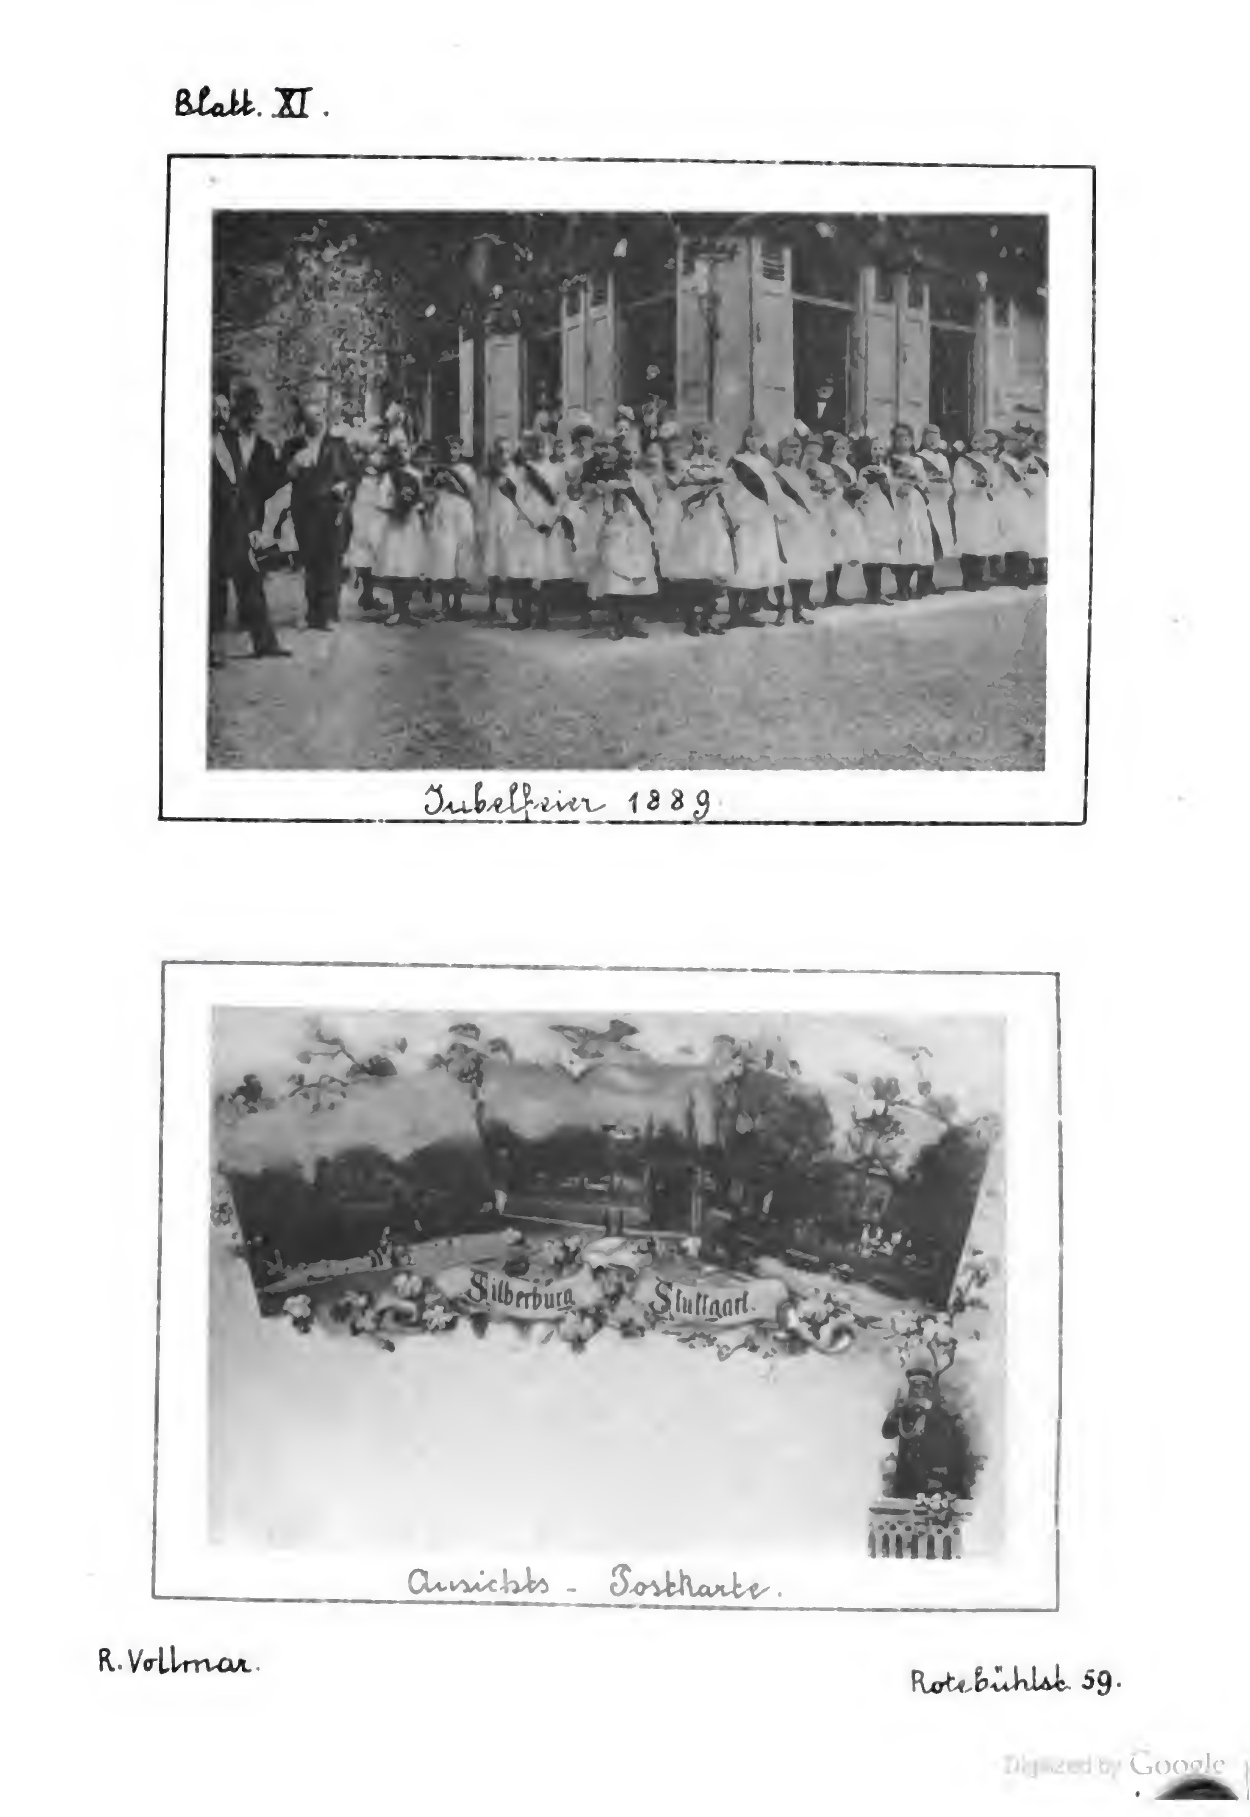 Blatt. XI.
Jubelfeier 1889.
Silberburg Stuttgart.
Ansichts - Postkarte.
R. Vollmar.
Rotebühlst. 59.
Digitized by Google